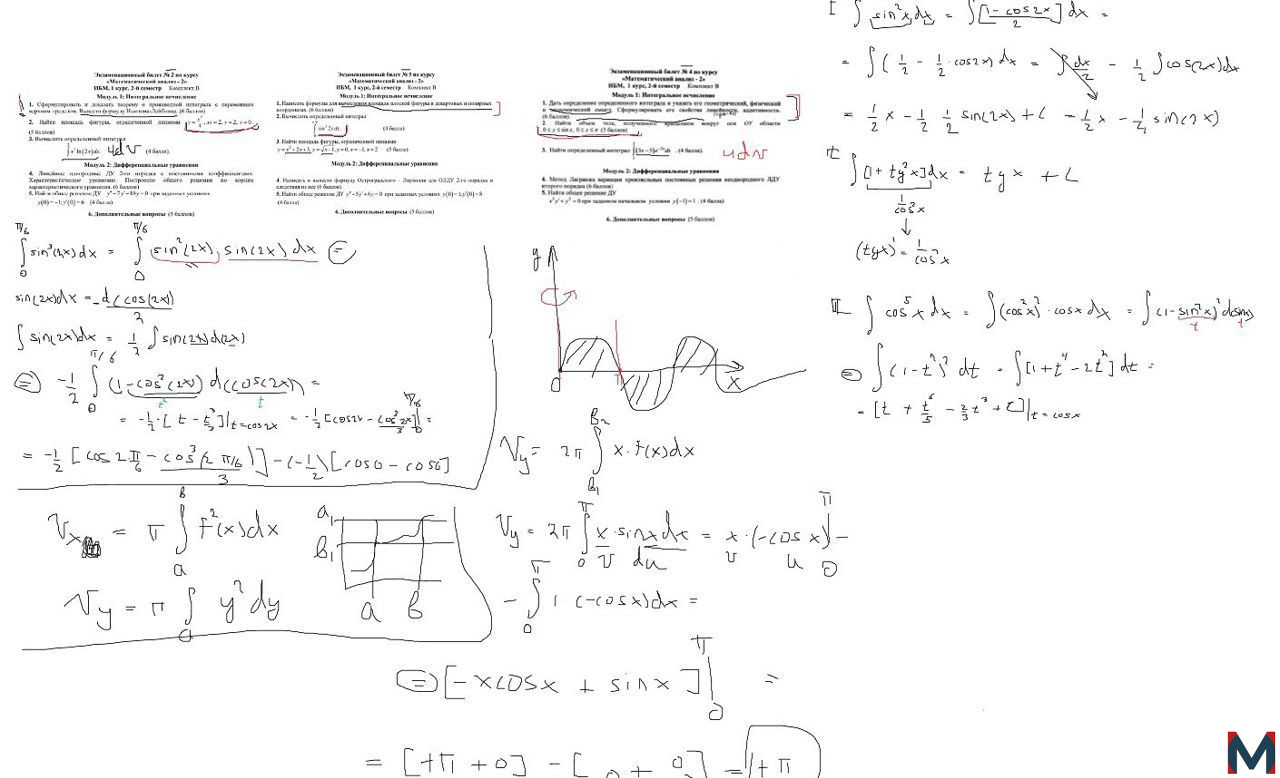 Экзаменационный билет № 2 по курсу
«Математический анализ - 2»
ИБМ, 1 курс, 2-й семестр Комплект В
Модуль 1: Интегральное исчисление
1. Сформулировать и доказать теорему о производной интеграла с переменным
верхним пределом. Вывести формулу Ньютона-Лейбница. (6 баллов)
2. Найти площадь фигуры, ограниченной линиями
(5 баллов)
3. Вычислить определенный интеграл
(4 балла)
udv
Модуль 2: Дифференциальные уравнения
4. Линейные однородные ДУ 2-го порядка с постоянными коэффициентами.
Характеристическое уравнение. Построение общего решения по корням
характеристического уравнения. (6 баллов)
5. Найти общее решение ДУ y''−7y'+10y=0 при заданных условиях
(4 балла)
6. Дополнительные вопросы (5 баллов)
Экзаменационный билет № 5 по курсу
«Математический анализ - 2»
ИБМ, 1 курс, 2-й семестр Комплект В
Модуль 1: Интегральное исчисление
1. Написать формулы для вычисления площади плоской фигуры в декартовых и полярных
координатах. (6 баллов)
2. Вычислить определенный интеграл
∫sin³2x dx. (4 балла)
3. Найти площадь фигуры, ограниченной линиями
(5 баллов)
Модуль 2: Дифференциальные уравнения
4. Написать и вывести формулу Остроградского – Лиувилля для ОЛДУ 2-го порядка и
следствия из нее (6 баллов)
5. Найти общее решение ДУ y''−5y'+6y=0 при заданных условиях
(4 балла)
6. Дополнительные вопросы (5 баллов)
Экзаменационный билет № 4 по курсу
«Математический анализ - 2»
ИБМ, 1 курс, 2-й семестр Комплект В
Модуль 1: Интегральное исчисление
1. Дать определение определенного интеграла и указать его геометрический, физический
и экономический смысл. Сформулировать его свойства линейности, аддитивности.
(6 баллов)
2 Найти объем тела, полученного вращением вокруг оси OY области
0≤y≤sinx, 0≤x≤π (5 баллов)
3. Найти определенный интеграл (4 балла)
udv
Модуль 2: Дифференциальные уравнения
4. Метод Лагранжа вариации произвольных постоянных решения неоднородного ЛДУ
второго порядка (6 баллов)
5. Найти общее решение ДУ
x²y'+y²=0 при заданном начальном условии y(−1)=1. (4 балла)
6. Дополнительные вопросы (5 баллов)
I ∫ sin²x dx = ∫ [1-cos2x]/2 dx =
= ∫ (1/2 - 1/2 cos2x) dx = ∫ dx/2 - 1/2 ∫ cos(2x) dx
= 1/2 x - 1/2 · 1/2 sin(2x) + C = 1/2 x - 1/4 sin(2x)
∫ [1 + tg²x] dx = tg x + C
1/cos²x
(tgx)' = 1/cos²x
II ∫ cos⁵x dx = ∫ (cos²x)² · cosx dx = ∫ (1-sin²x)² dsinx
t t
= ∫ (1-t²)² dt = ∫ [1+t⁴-2t²] dt =
= [t + t⁵/5 - 2/3 t³ + C]|t=cosx
∫ sin³(2x) dx = ∫ sin²(2x) sin(2x) dx =
π/6 π/6
0 0
sin(2x)dx = -d(cos(2x))/2
∫ sin(2x)dx = 1/2 ∫ sin(2x)d(2x)
= -1/2 ∫ (1-cos²(2x)) d(cos(2x)) =
t² t
= -1/2 · [t - t³/3]|t=cos2x = -1/2 [cos2x - cos³2x/3] =
= -1/2 [cos 2π/6 - cos³(2π/6)/3] - (-1/2)[cos0 - cos0]
y
0
π
x
Vx = π ∫ f²(x)dx
в
a
Vy = π ∫ y²dy
a₁
в₁
a в
Vy = 2π ∫ x·f(x)dx
в₂
в₁
Vy = 2π ∫ x·sinx dx = x·(-cosx) -
v du v u
- ∫ 1·(-cosx)dx =
= [-xcosx + sinx] =
π
0
= [+π + 0] - [0 + 0] = +π
M